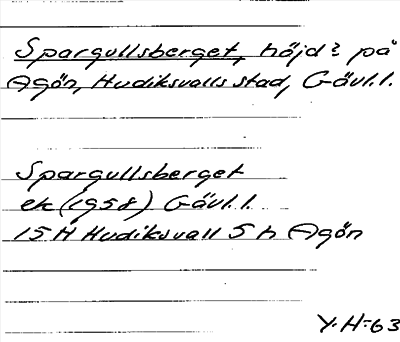 Spargullsberget, höjd? på
Agön, Hudiksvalls stad, Gävl.l.
Spargullsberget
ek (1958) Gävl.l.
15 H Hudiksvall S h Agön
Y.H-63